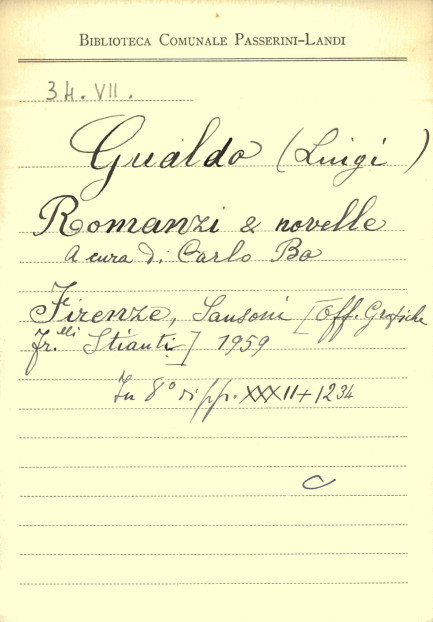 BIBLIOTECA COMUNALE PASSERINI-LANDI
34. VII.
Gualdo (Luigi)
Romanzi e novelle
A cura di Carlo Bo
Firenze, Sansoni [Off. Grafiche
Fr.elli Stianti] 1959
In 8° di pp. XXXII + 1234
C